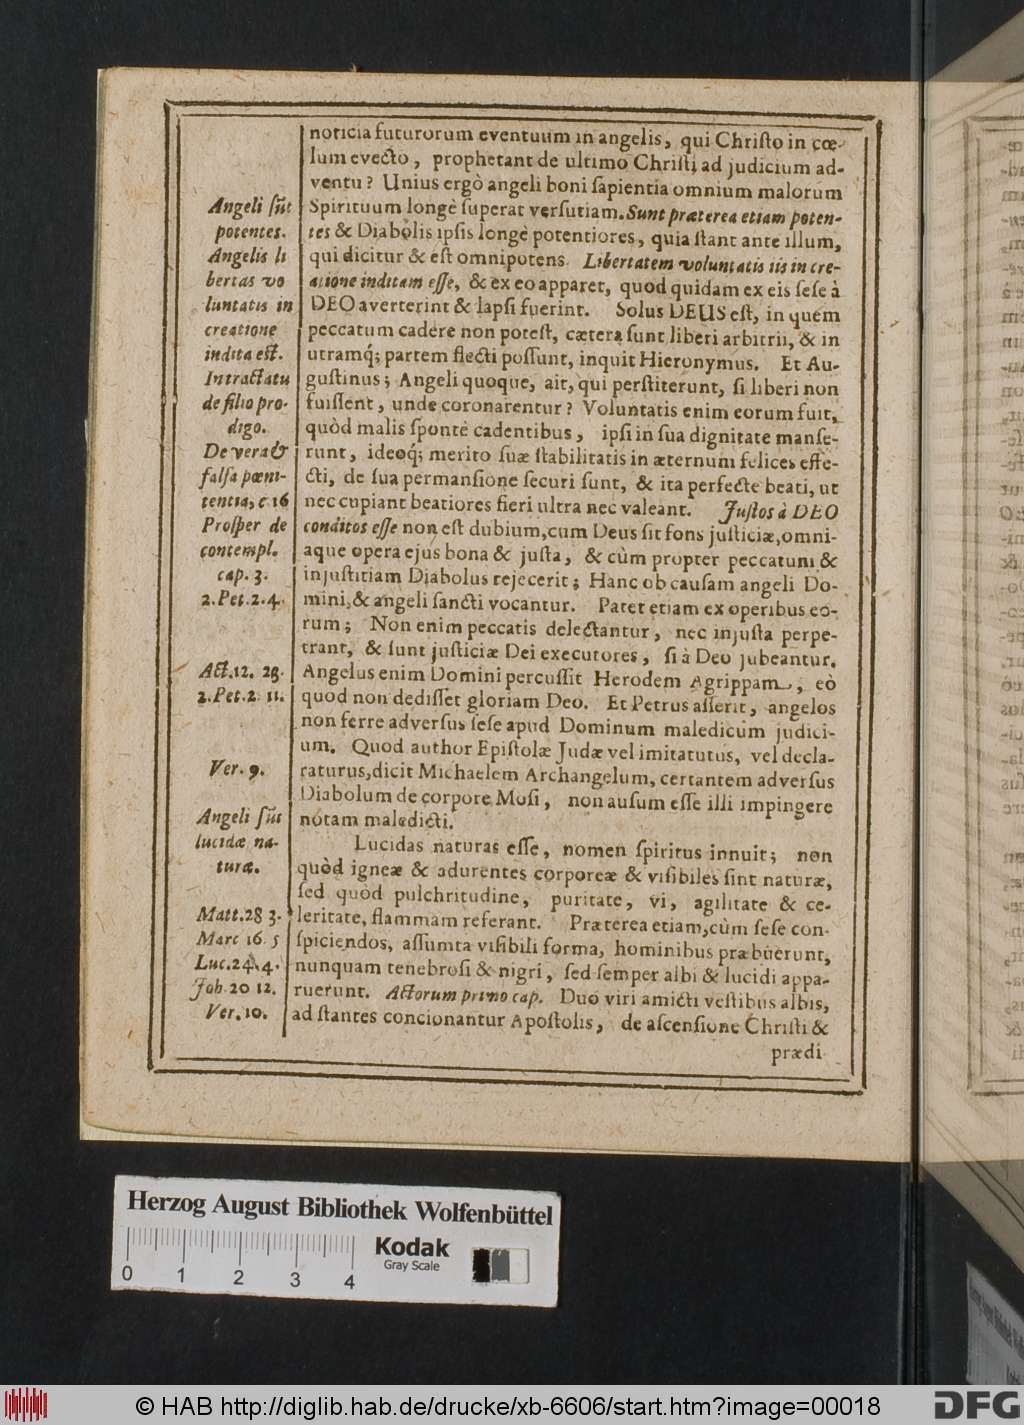 noticia futurorum eventuum in angelis, qui Christo in cœ-
lum evecto, prophetant de ultimo Christi ad judicium ad-
ventu? Unius ergò angeli boni sapientia omnium malorum
Spirituum longè superat versutiam. Sunt præterea etiam poten-
tes & Diabolis ipsis longè potentiores, quia stant ante illum,
qui dicitur & est omnipotens. Libertatem voluntatis iis in cre-
atione inditam esse, & ex eo apparet, quod quidam ex eis sese à
DEO averterint & lapsi fuerint. Solus DEUS est, in quem
peccatum cadere non potest, cætera sunt liberi arbitrii, & in
utramq́; partem flecti possunt, inquit Hieronymus. Et Au-
gustinus; Angeli quoque, ait, qui perstiterunt, si liberi non
fuissent, unde coronarentur? Voluntatis enim eorum fuit,
quòd malis spontè cadentibus, ipsi in sua dignitate manse-
runt, ideoq́; merito suæ stabilitatis in æternum felices effe-
cti, de sua permansione securi sunt, & ita perfecte beati, ut
nec cupiant beatiores fieri ultra nec valeant. Justos à DEO
conditos esse non est dubium, cum Deus sit fons justiciæ, omni-
aque opera ejus bona & justa, & cùm propter peccatum &
injustitiam Diabolus rejecerit; Hanc ob causam angeli Do-
mini, & angeli sancti vocantur. Patet etiam ex operibus eo-
rum; Non enim peccatis delectantur, nec injusta perpe-
trant, & sunt justiciæ Dei executores, si à Deo jubeantur.
Angelus enim Domini percussit Herodem Agrippam, eò
quod non dedisset gloriam Deo. Et Petrus asserit, angelos
non ferre adversus sese apud Dominum maledicum judici-
um. Quod author Epistolæ Judæ vel imitatutus, vel decla-
raturus, dicit Michaelem Archangelum, certantem adversus
Diabolum de corpore Mosi, non ausum esse illi impingere
nòtam maledicti.
Lucidas naturas esse, nomen spiritus innuit; non
quòd igneæ & adurentes corporeæ & visibiles sint naturæ,
sed quòd pulchritudine, puritate, vi, agilitate & ce-
leritate, flammam referant. Præterea etiam, cùm sese con-
spiciendos, assumta visibili forma, hominibus præbuerunt,
nunquam tenebrosi & nigri, sed semper albi & lucidi appa-
ruerunt. Actorum primo cap. Duo viri amicti vestibus albis,
ad stantes concionantur Apostolis, de ascensione Christi &
prædi
Angeli sũt
potentes.
Angelis li
bertas vo
luntatis in
creatione
indita est.
In tractatu
de filio pro-
digo.
De vera &
falsa pœni-
tentia, c. 16
Prosper de
contempl.
cap. 3.
2. Pet. 2. 4.
Act. 12. 23.
2. Pet. 2. 11.
Ver. 9.
Angeli sũt
lucidæ na-
turæ.
Matt. 28 3.
Marc 16. 5
Luc. 24. 4.
Joh. 20 12.
Ver. 10.
Herzog August Bibliothek Wolfenbüttel
Kodak
Gray Scale
0 1 2 3 4
© HAB http://diglib.hab.de/drucke/xb-6606/start.htm?image=00018
DFG